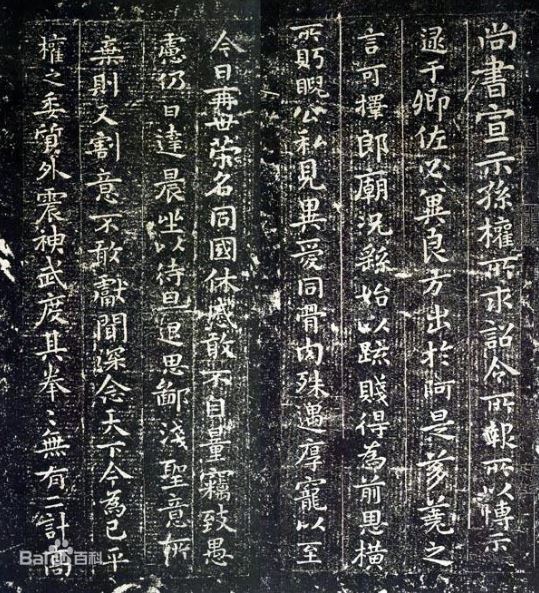 尚書宣示孫權所求詔令所報所以博示
逮于卿佐必冀良方出於阿是芻蕘之
言可擇郎廟況繇始以疏賤得為前恩橫
所眄睨公私見異愛同骨肉殊遇厚寵以至
今日再世榮名同國休慼敢不自量竊致愚
慮仍日達晨坐以待旦退思鄙淺聖意所
棄則又割意不敢獻聞深念天下今為已平
權之委質外震神武度其拳〻無有二計高
Baidu百科